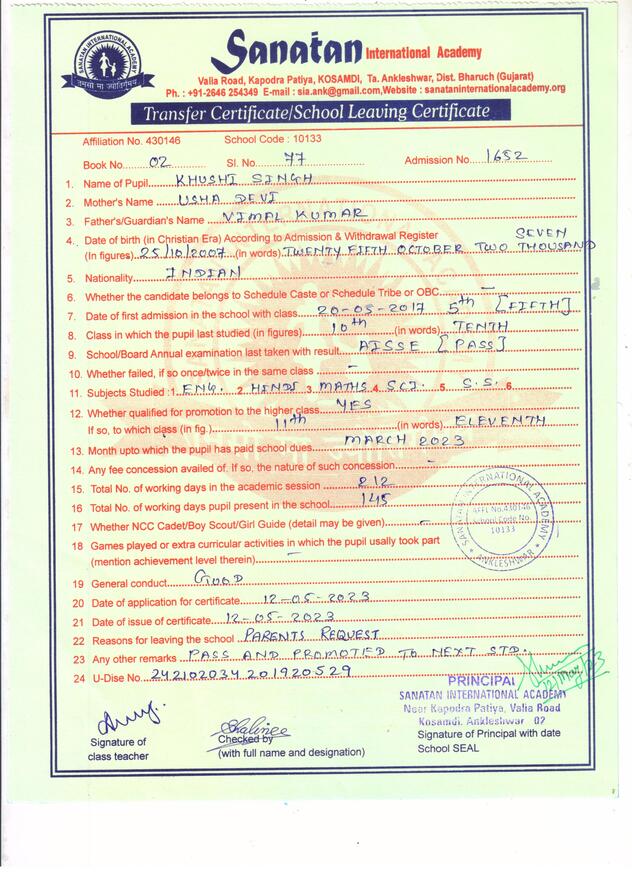 SANATAN INTERNATIONAL ACADEMY
तमसो मा ज्योतिर्गमय
Sanatan International Academy
Valia Road, Kapodra Patiya, KOSAMDI, Ta. Ankleshwar, Dist. Bharuch (Gujarat)
Ph. : +91-2646 254349 E-mail : sia.ank@gmail.com,Website : sanataninternationalacademy.org
Transfer Certificate/School Leaving Certificate
Affiliation No. 430146 School Code : 10133
Book No. 02 Sl. No. 77 Admission No. 1652
1. Name of Pupil KHUSHI SINGH
2. Mother's Name USHA DEVI
3. Father's/Guardian's Name VIMAL KUMAR
4. Date of birth (in Christian Era) According to Admission & Withdrawal Register SEVEN
(In figures) 25/10/2007 (in words) TWENTY FIFTH OCTOBER TWO THOUSAND
5. Nationality INDIAN
6. Whether the candidate belongs to Schedule Caste or Schedule Tribe or OBC —
7. Date of first admission in the school with class 20-05-2017 5th [FIFTH]
8. Class in which the pupil last studied (in figures) 10th (in words) TENTH
9. School/Board Annual examination last taken with result AISSE [PASS]
10. Whether failed, if so once/twice in the same class -
11. Subjects Studied : 1. ENG. 2. HINDI 3. MATHS 4. SCI. 5. S.S. 6.
12. Whether qualified for promotion to the higher class YES
If so, to which class (in fig.) 11th (in words) ELEVENTH
13. Month upto which the pupil has paid school dues. MARCH 2023
14. Any fee concession availed of. If so, the nature of such concession -
15. Total No. of working days in the academic session 212
16. Total No. of working days pupil present in the school 145
17. Whether NCC Cadet/Boy Scout/Girl Guide (detail may be given) -
18 Games played or extra curricular activities in which the pupil usally took part
(mention achievement level therein) —
SANATAN INTERNATIONAL ACADEMY
AFFL No.430146
School Code No.
10133
ANKLESHWAR
19 General conduct GOOD
20 Date of application for certificate 12-05-2023
21 Date of issue of certificate 12-05-2023
22 Reasons for leaving the school PARENTS REQUEST
23 Any other remarks PASS AND PROMOTED TO NEXT STD.
24 U-Dise No. 242102034201920529
PRINCIPAL
SANATAN INTERNATIONAL ACADEMY
Near Kapodra Patiya, Valia Road
Kosamdi. Ankleshwar 02
Shalinee
Signature of class teacher
Checked by
(with full name and designation)
Signature of Principal with date
School SEAL